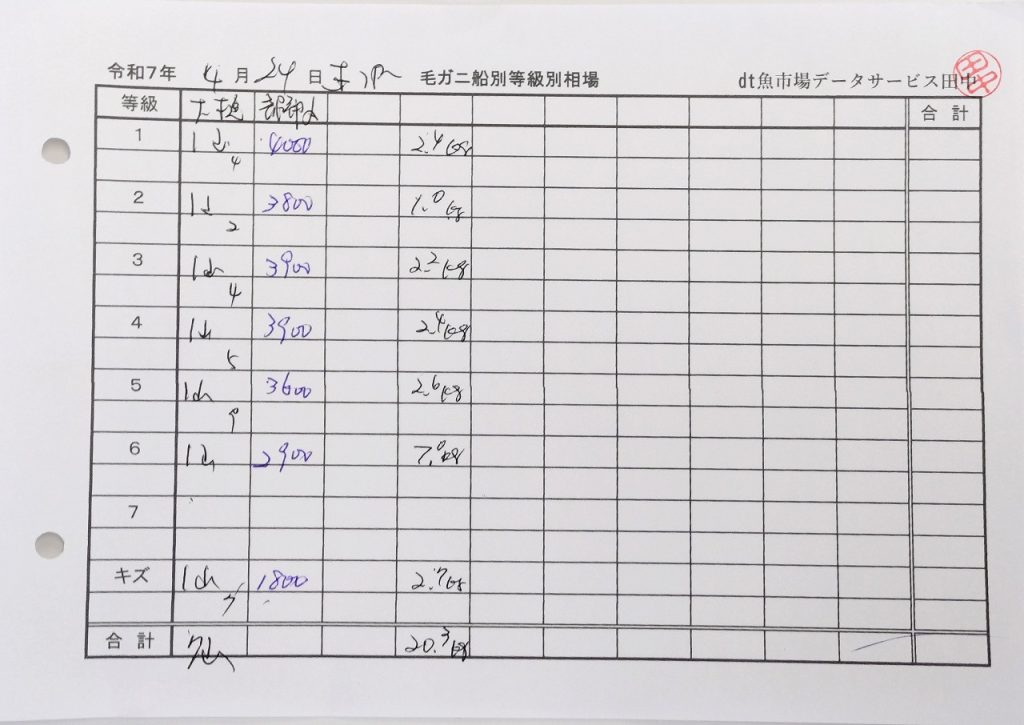 令和7年 4月24日 毛ガニ船別等級別相場 dt魚市場データサービス田中
等級 合計
1 1山 4000 2.4kg
4
2 1山 3800 1.0kg
2
3 1山 3900 2.2kg
4
4 1山 3900 2.4kg
5
5 1山 3600 2.6kg
9
6 1山 2900 7.0kg
7
キズ 1山 1800 2.7kg
7
合計 7山 20.3kg